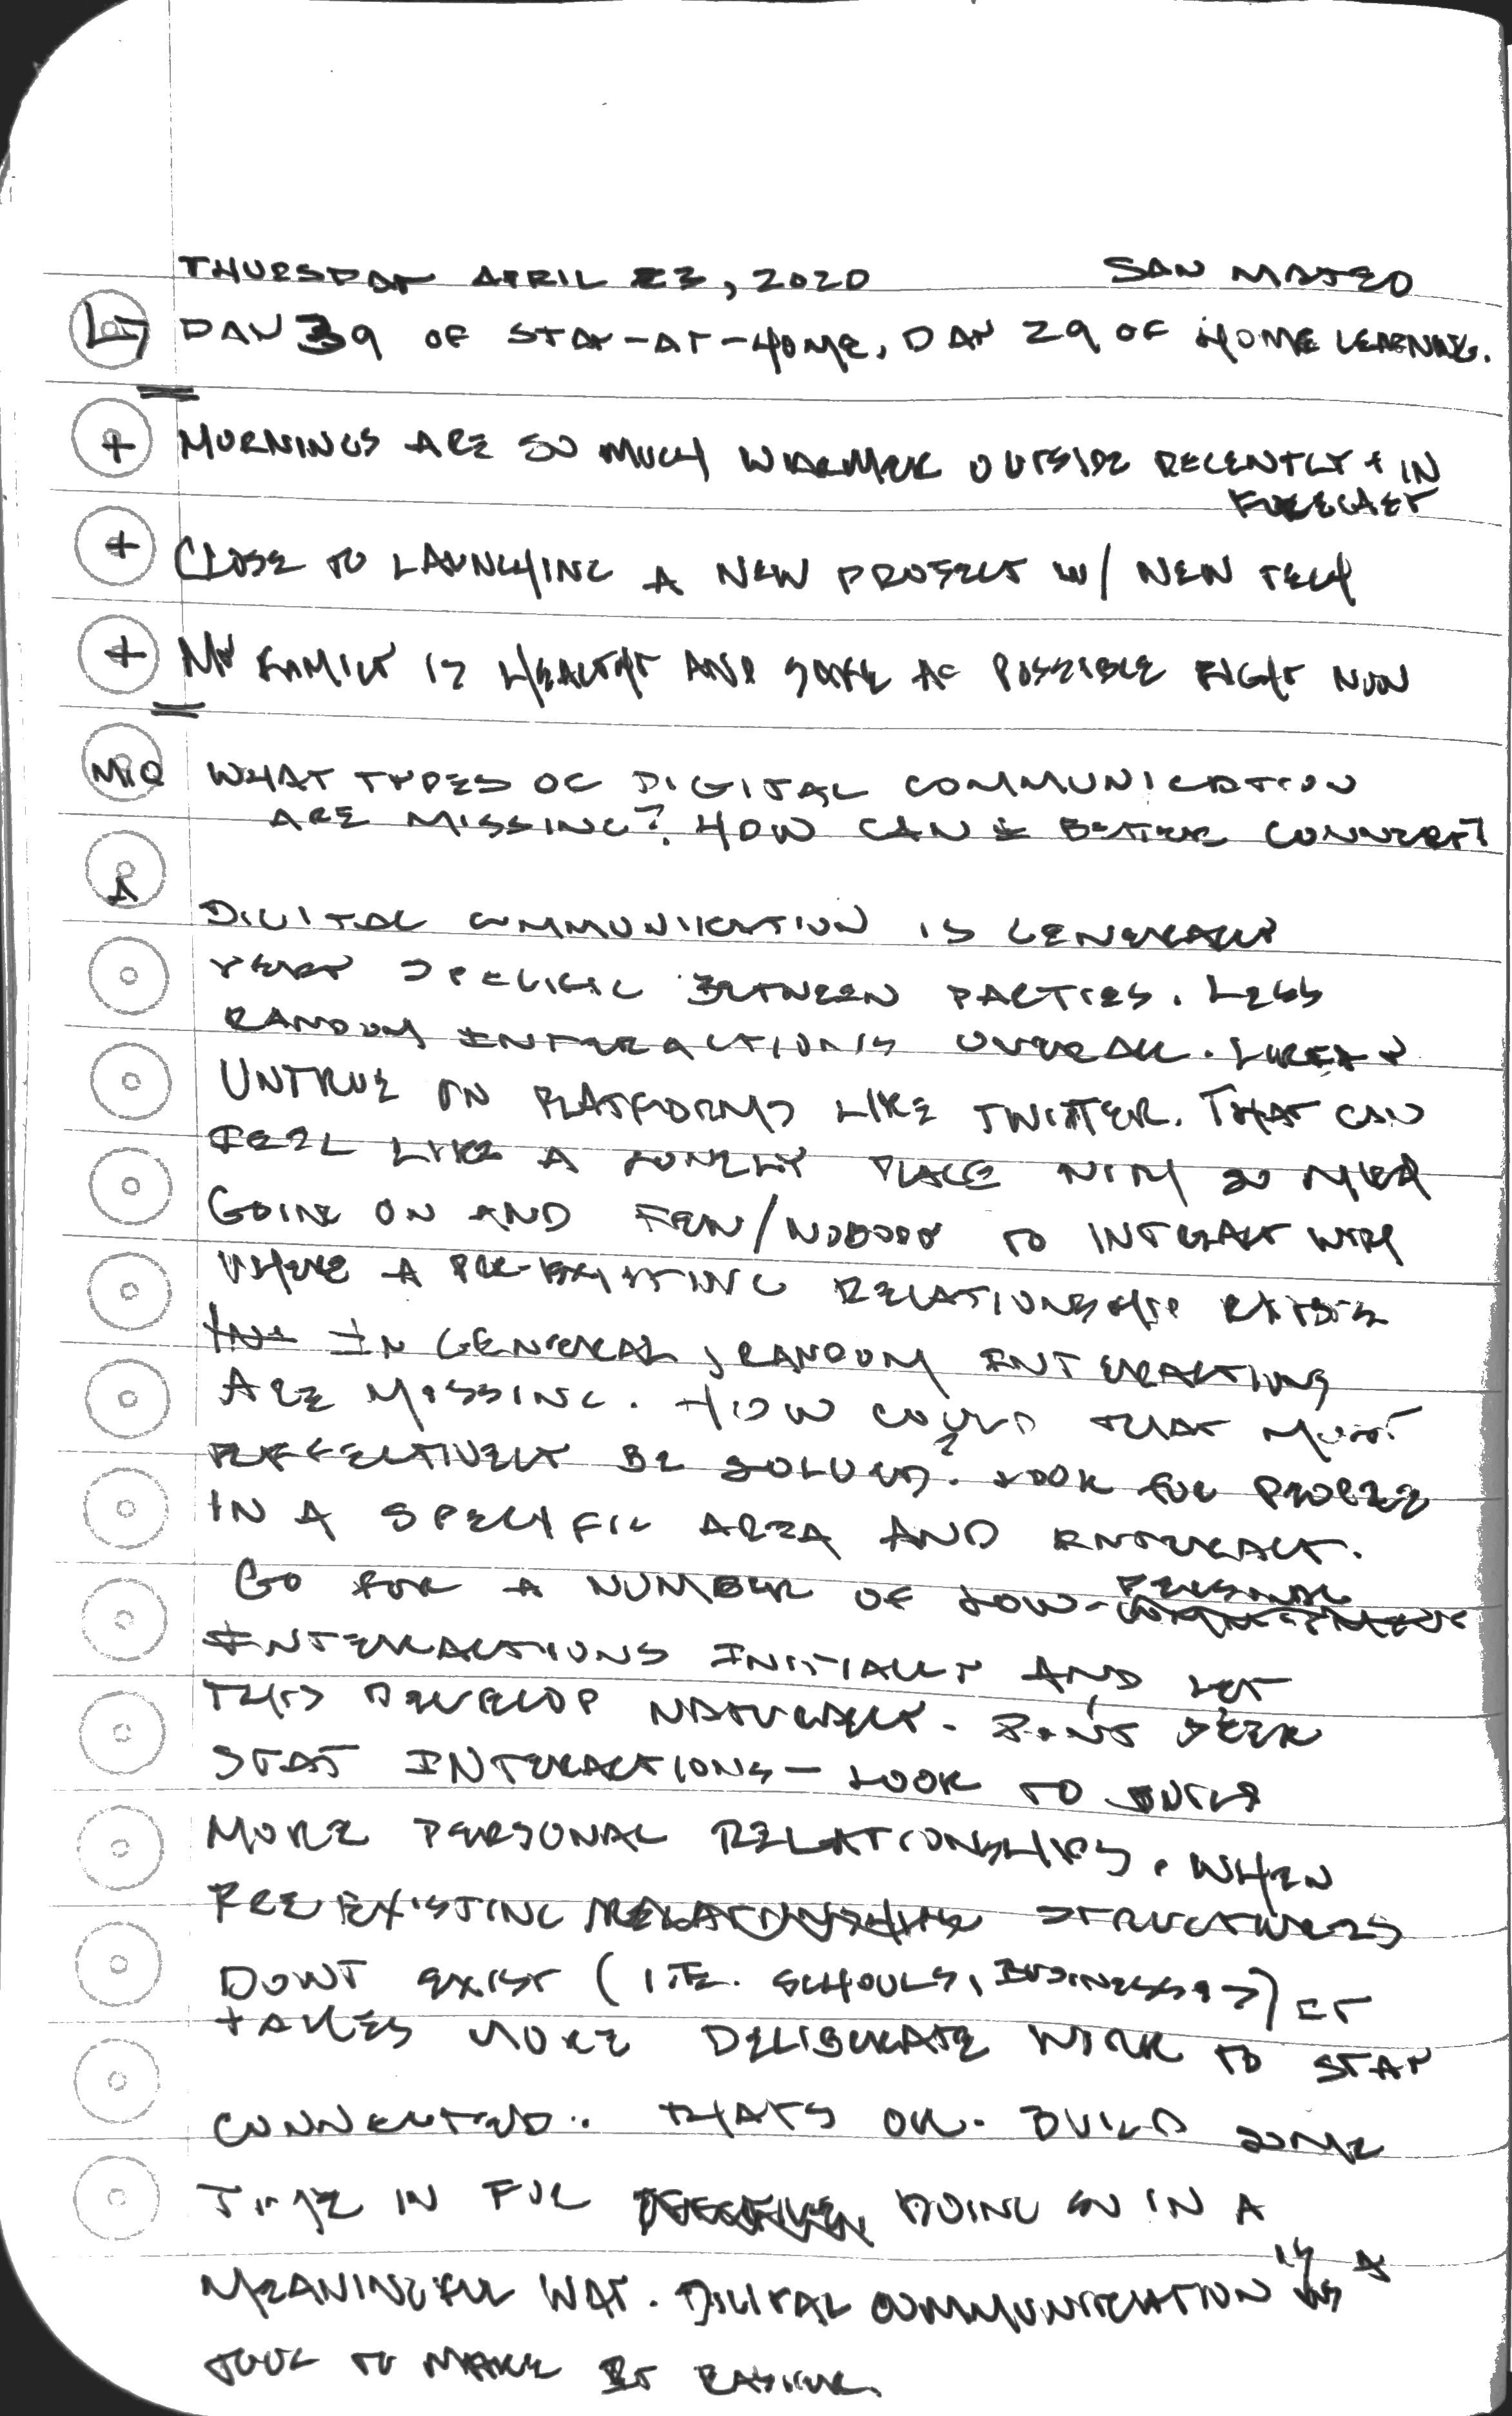 THURSDAY APRIL 23, 2020 SAN MATEO
L7 DAY 39 OF STAY-AT-HOME, DAY 29 OF HOME LEARNING.
+ MORNINGS ARE SO MUCH WARMER OUTSIDE RECENTLY + IN
FORECAST
+ CLOSE TO LAUNCHING A NEW PROJECT W/ NEW TECH
+ MY FAMILY IS HEALTHY AND SAFE AS POSSIBLE RIGHT NOW
MIQ WHAT TYPES OF DIGITAL COMMUNICATION
ARE MISSING? HOW CAN I BETTER CONNECT?
A
DIGITAL COMMUNICATION IS GENERALLY
VERY SPECIFIC BETWEEN PARTIES. LESS
RANDOM INTERACTIONS OVERALL. LIKELY
UNTRUE ON PLATFORMS LIKE TWITTER. THAT CAN
FEEL LIKE A LONELY PLACE WITH SO MUCH
GOING ON AND FEW/NOBODY TO INTERACT WITH
WHERE A PRE-EXISTING RELATIONSHIP EXISTS
IN GENERAL, RANDOM INTERACTIONS
ARE MISSING. HOW COULD THAT MOST
EFFECTIVELY BE SOLVED? LOOK FOR PEOPLE
IN A SPECIFIC AREA AND INTERACT.
GO FOR A NUMBER OF LOW-PRESSURE
INTERACTIONS INITIALLY AND LET
THIS DEVELOP NATURALLY. DON'T SEEK
INTERACTIONS - LOOK TO BUILD
MORE PERSONAL RELATIONSHIPS. WHEN
PREEXISTING STRUCTURES
DON'T EXIST (I.E. SCHOOLS, BUSINESSES) IT
TAKES MORE DELIBERATE WORK TO STAY
CONNECTED. THATS OK. BUILD SOME
TIME IN FOR DOING SO IN A
MEANINGFUL WAY. DIGITAL COMMUNICATION IS A
TOOL TO MAKE IT EASIER.